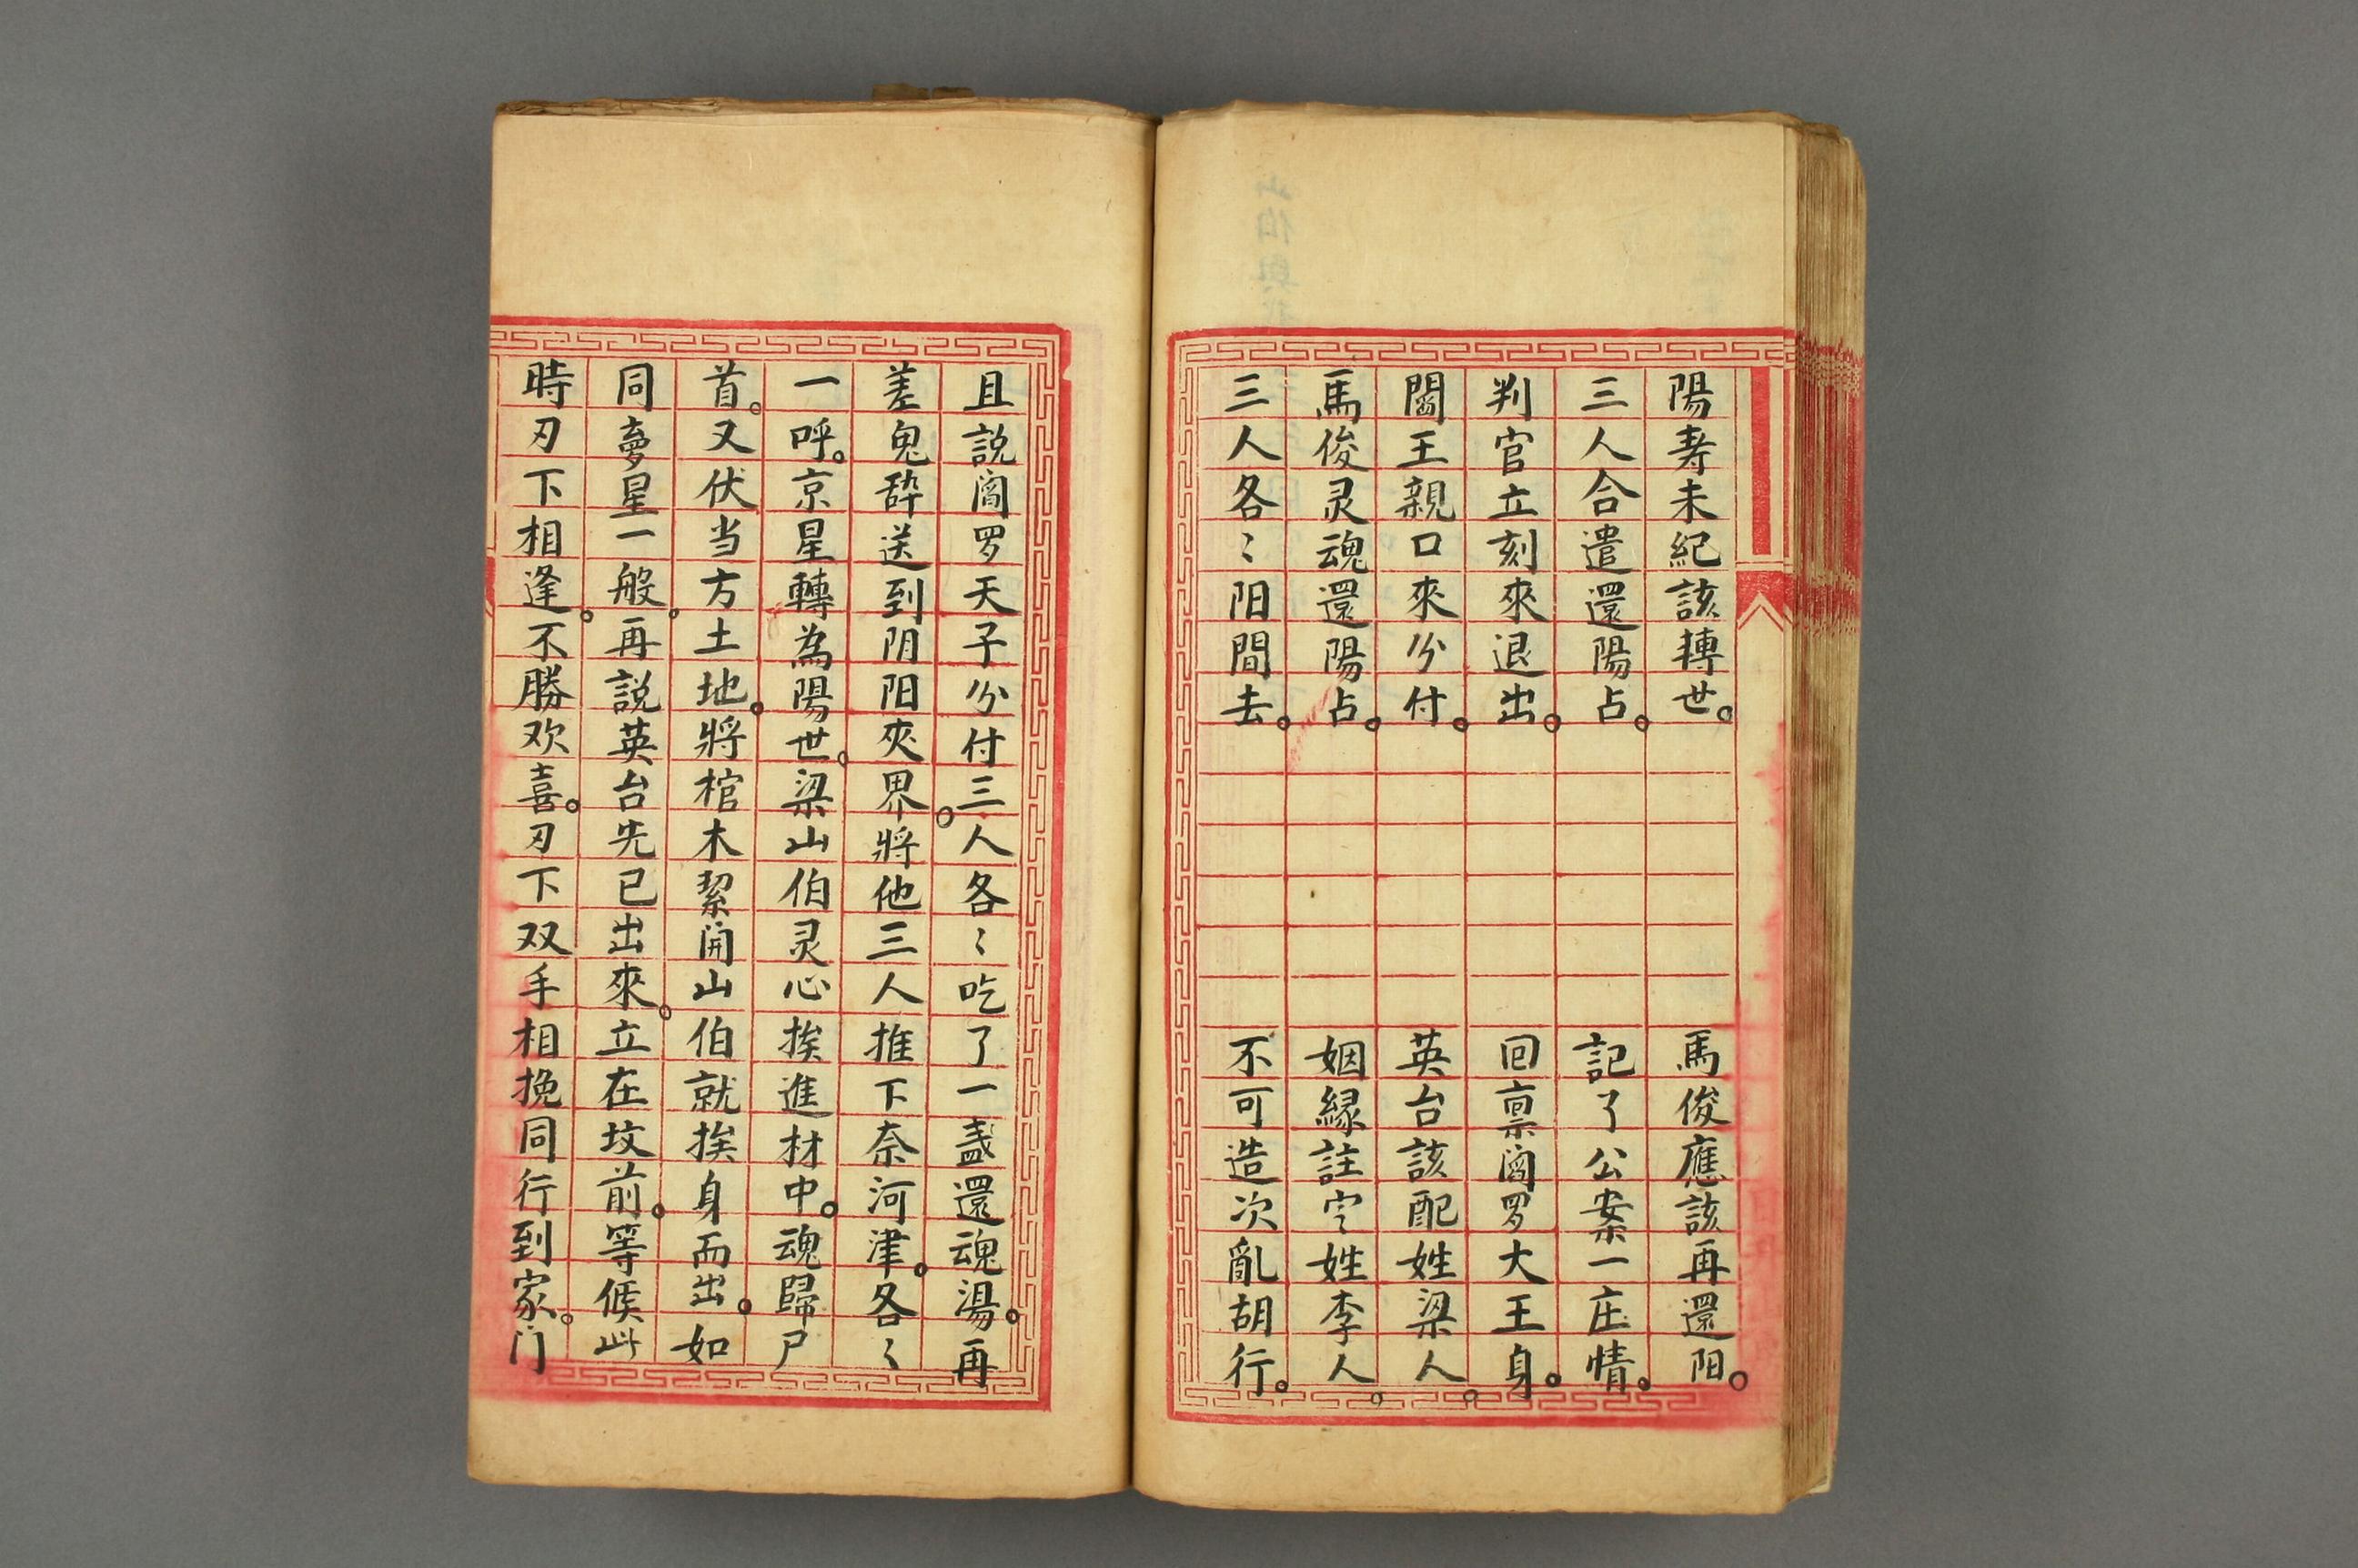 陽寿未紀該轉世。馬俊應該再還阳。
三人合遣還陽占。記了公案一庄情。
判官立刻來退出。回禀阎罗大王身。
閻王親口來分付。英台該配姓梁人。
馬俊灵魂還陽占。姻縁註定姓李人。
三人各〻阳間去。不可造次亂胡行。
且説阎罗天子分付三人各〻吃了一盏還魂湯。再
差鬼碎送到阴阳夾界。將他三人推下奈河津。各〻
一呼。京星轉為陽世。梁山伯灵心挨進材中。魂歸尸
首。又伏当方土地。將棺木挈開山伯就挨身而出。如
同夣星一般。再説英台先已出來。立在坟前。等候此
時刃下相逢。不勝欢喜。刃下双手相挽同行到家。门